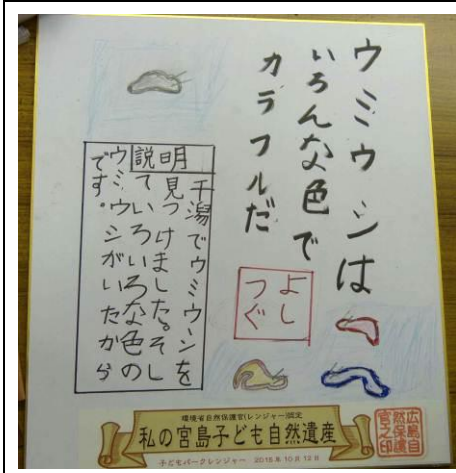 ウミウシは
いろんな色で
カラフルだ
よし
つぐ
説明
干潟でウミウシを
見つけました。そし
ていろいろな色の
ウミウシがいたから
です。
環境省自然保護官(レンジャー)認定
私の宮島子ども自然遺産
子どもパークレンジャー 2015年10月12日
広島自
然保護
官之印